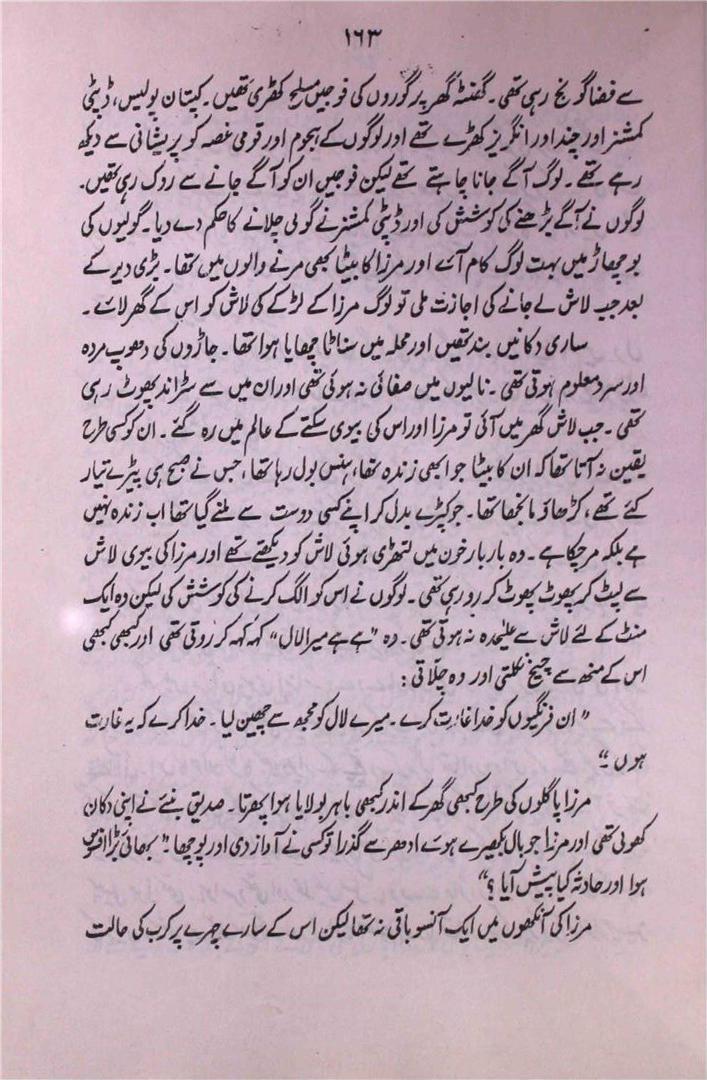 ۱۶۳
سے فضا گونج رہی تھی۔ گھنٹہ گھر پر گوروں کی فوجیں مسلح کھڑی تھیں۔ کپتان پولیس، ڈپٹی
کمشنر اور چند اور انگریز کھڑے تھے اور لوگوں کے ہجوم اور قومی غصہ کو پریشانی سے دیکھ
رہے تھے۔ لوگ آگے جانا چاہتے تھے لیکن فوجیں ان کو آگے جانے سے روک رہی تھیں۔
لوگوں نے آگے بڑھنے کی کوشش کی اور ڈپٹی کمشنر نے گولی چلانے کا حکم دے دیا۔ گولیوں کی
بوچھاڑ میں بہت لوگ کام آئے اور مرزا کا بیٹا بھی مرنے والوں میں تھا۔ بڑی دیر کے
بعد جب لاش لے جانے کی اجازت ملی تو لوگ مرزا کے لڑکے کی لاش کو اس کے گھر لائے۔
ساری دکانیں بند تھیں اور محلہ میں سناٹا چھایا ہوا تھا۔ جاڑوں کی دھوپ مردہ
اور سرد معلوم ہوتی تھی۔ نالیوں میں صفائی نہ ہوئی تھی اور ان میں سے سڑاند پھوٹ رہی
تھی۔ جب لاش گھر میں آئی تو مرزا اور اس کی بیوی سکتے کے عالم میں رہ گئے۔ ان کو کسی طرح
یقین نہ آتا تھا کہ ان کا بیٹا جو ابھی زندہ تھا، ہنس بول رہا تھا، جس نے صبح ہی پیڑے تیار
کئے تھے، کڑھاؤ مانجھا تھا۔ جو کپڑے بدل کر اپنے کسی دوست سے ملنے گیا تھا اب زندہ نہیں
ہے بلکہ مر چکا ہے۔ وہ بار بار خون میں لتھڑی ہوئی لاش کو دیکھتے تھے اور مرزا کی بیوی لاش
سے لپٹ کر پھوٹ پھوٹ کر رو رہی تھی۔ لوگوں نے اس کو الگ کرنے کی کوشش کی لیکن وہ ایک
منٹ کے لئے لاش سے علیحدہ نہ ہوتی تھی۔ وہ "ہے ہے میرا لال" کہہ کہہ کر روتی تھی اور کبھی کبھی
اس کے منھ سے چیخ نکلتی اور وہ چلّاتی:
"ان فرنگیوں کو خدا غارت کرے۔ میرے لال کو مجھ سے چھین لیا۔ خدا کرے کہ یہ غارت
ہوں۔"
مرزا پاگلوں کی طرح کبھی گھر کے اندر کبھی باہر بولایا ہوا پھرتا۔ صدیق بنئے نے اپنی دکان
کھولی تھی اور مرزا جو بال بکھیرے ہوئے ادھر سے گذرا تو کسی نے آواز دی اور پوچھا۔ "بھائی بڑا افسوس
ہوا اور حادثہ کیا پیش آیا؟"
مرزا کی آنکھوں میں ایک آنسو باقی نہ تھا لیکن اس کے سارے چہرے پر کرب کی حالت